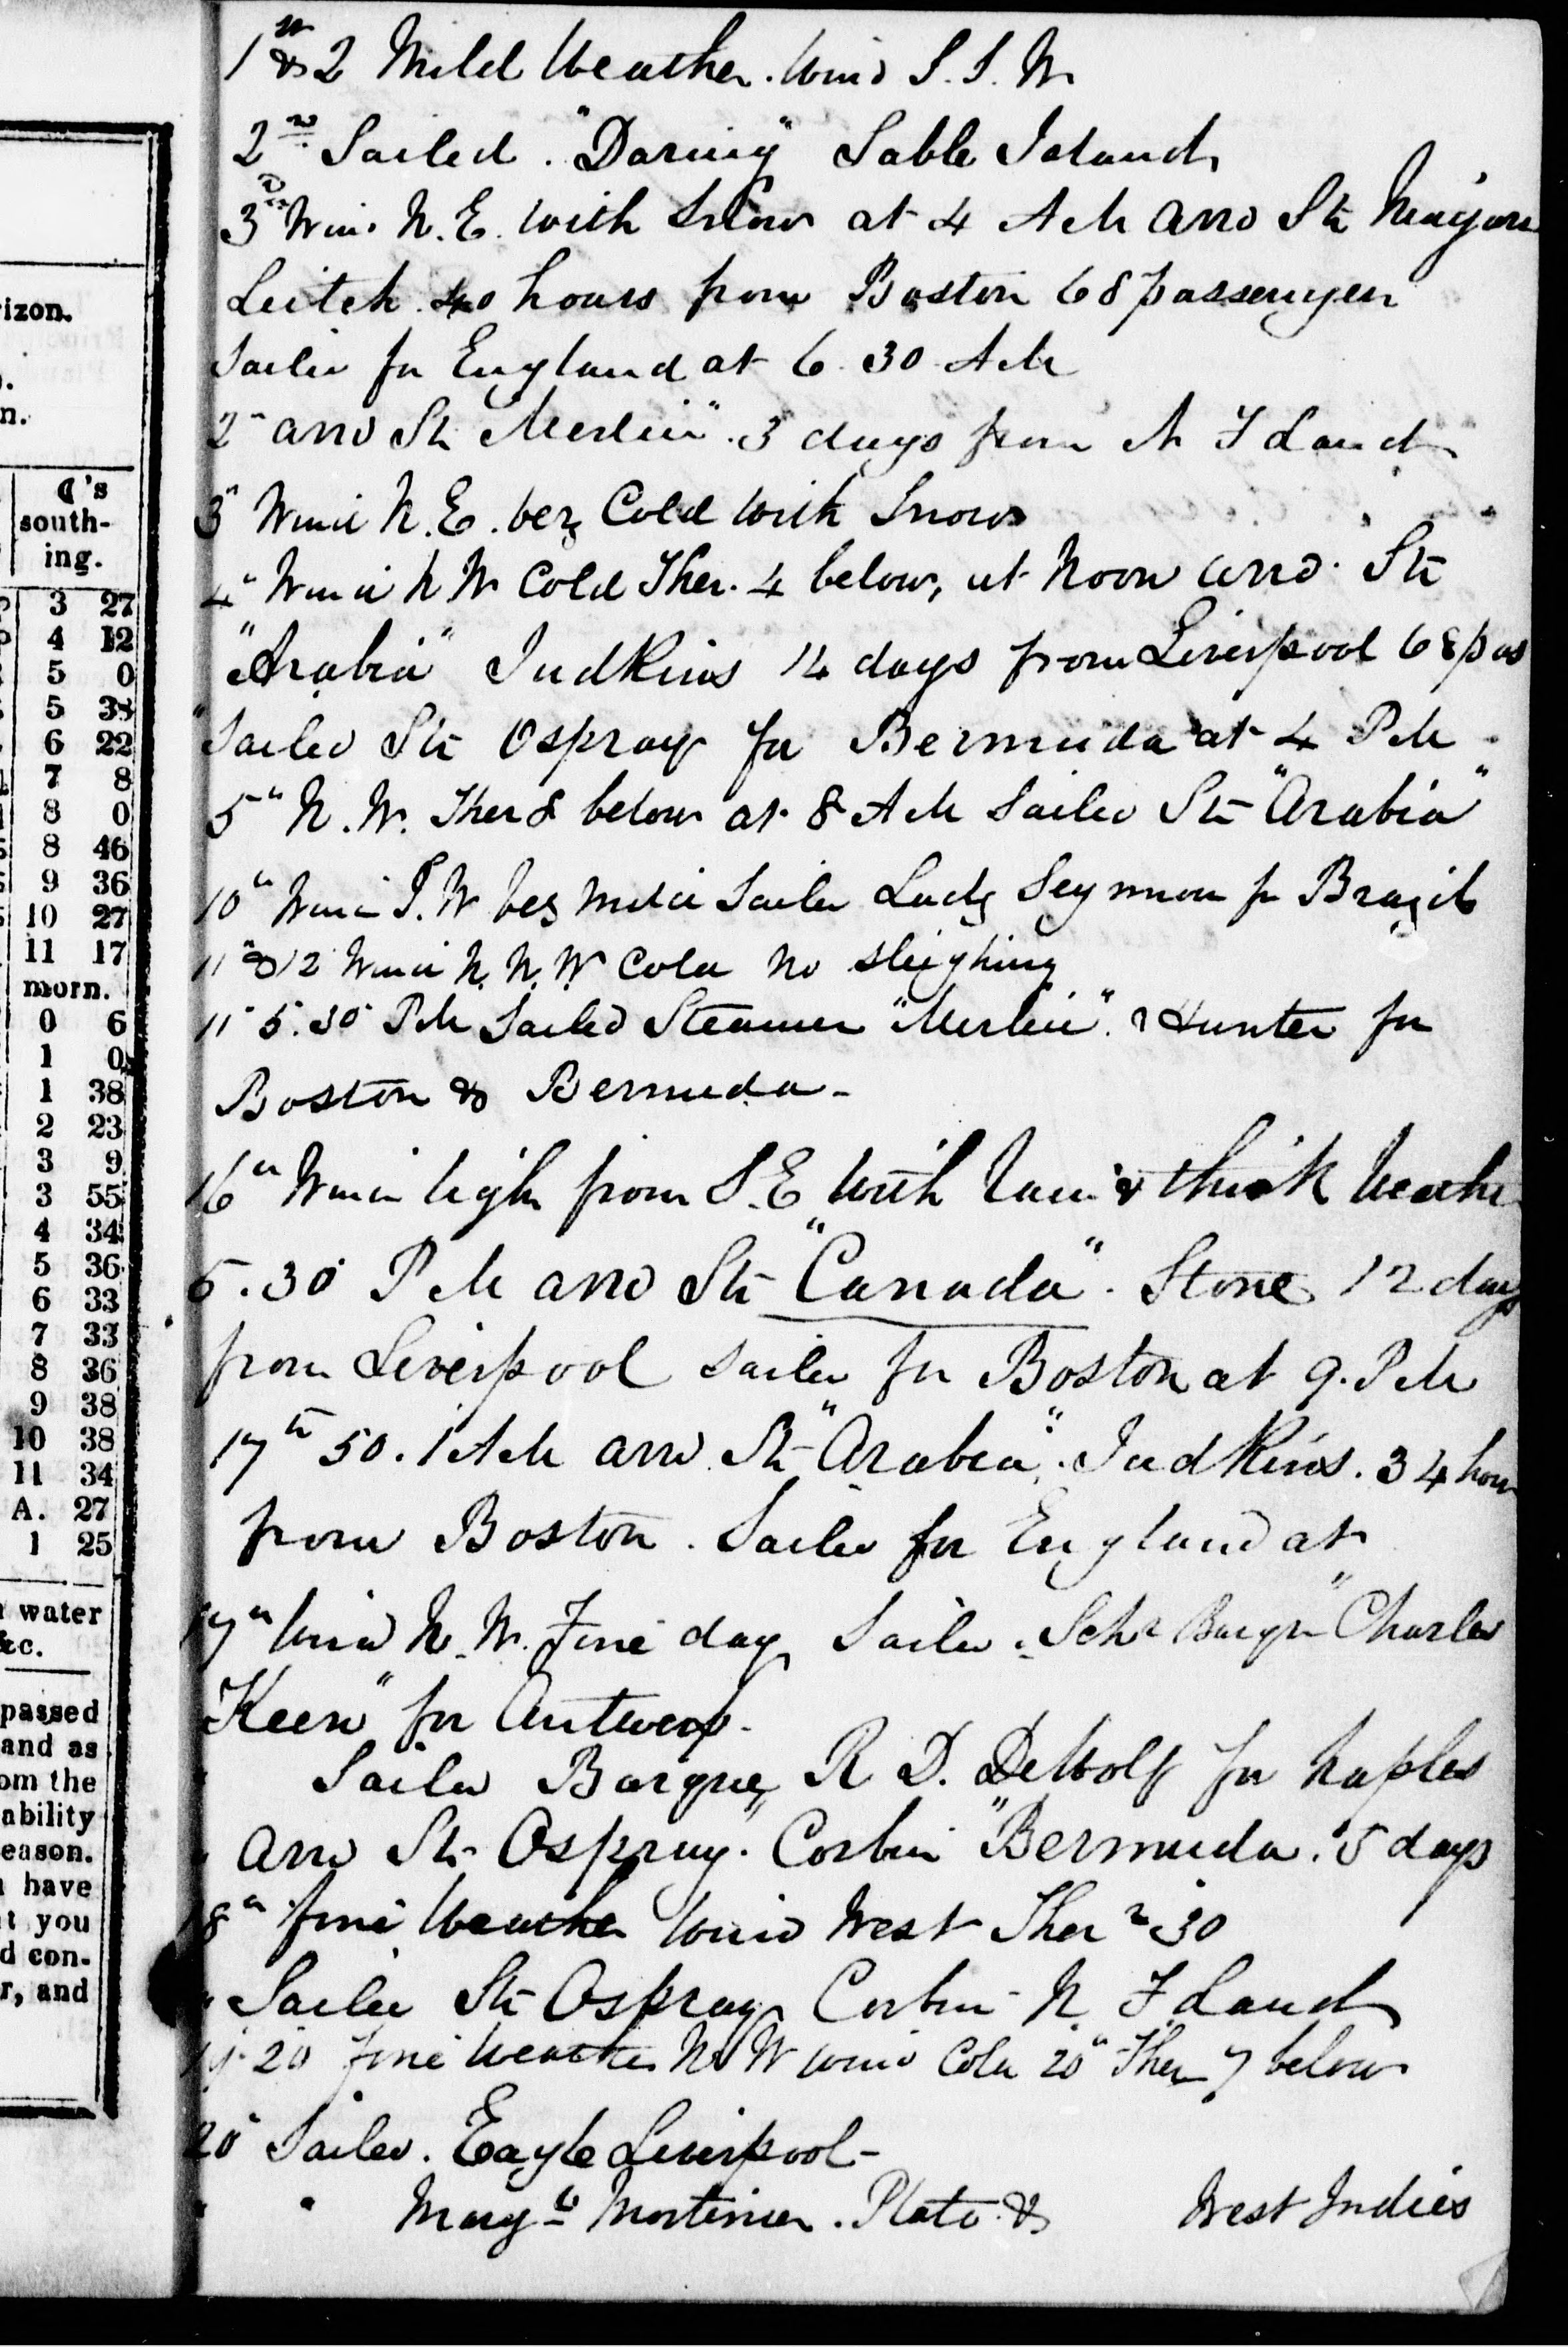 izon.
n.
☾'s
south-
ing.
3 27
4 12
5 0
5 38
6 22
7 8
8 0
8 46
9 36
10 27
11 17
morn.
0 6
1 0
1 38
2 23
3 9
3 55
4 34
5 36
6 33
7 33
8 36
9 38
10 38
11 34
A. 27
1 25
water
&c.
passed
and as
om the
ability
eason.
have
t you
d con-
r, and
1st & 2 Mild Weather. Wind S.S.W
2nd Sailed "Daring" Sable Island
3rd Wind N.E. with Snow at 4 AM arrd Str Niagara
Leitch 40 hours from Boston 68 passenger
Sailed for England at 6.30 AM
2" arrd Str Merlin" 3 days from N F Land
3" Wind N.E. very Cold with Snow
4" Wind N W Cold Ther. 4 below, at Noon arrd. Str
"Arabia" Judkins 14 days from Liverpool 68 pas
" Sailed Str Ospray for Bermuda at 4 PM
5" N.W. Ther 8 below at 8 AM Sailed Str "Arabia"
10" Wind S.W very mild Sailed Lady Seymour fr Brazil
11" & 12 Wind N.N.W Cold no sleighing
11" 5.30 PM Sailed Steamer "Merlin". Hunter for
Boston & Bermuda -
16" Wind high from S.E with rain & thick Weather
5.30 PM arrd Str "Canada". Stone 12 days
from Liverpool sailed for Boston at 9. PM
17th 50. 1 AM arrd Str "Arabia". Judkins. 34 hour
from Boston. Sailed for England at
17" Wind N.W. Fine day Sailed Schr "Charles
Keen" for Antwerp -
" Sailed Barque R D. DeWolf for Naples
" arrd Str Ospray. Corbin "Bermuda. 5 days
18" fine Weather Wind West Ther 30
" Sailed Str Ospray Corbin N F Land
19. 20 fine Weather N W Wind Cold 20" Ther 7 below
20" Sailed. Eagle Liverpool -
" " Mary Mortimer. Plato & West Indies